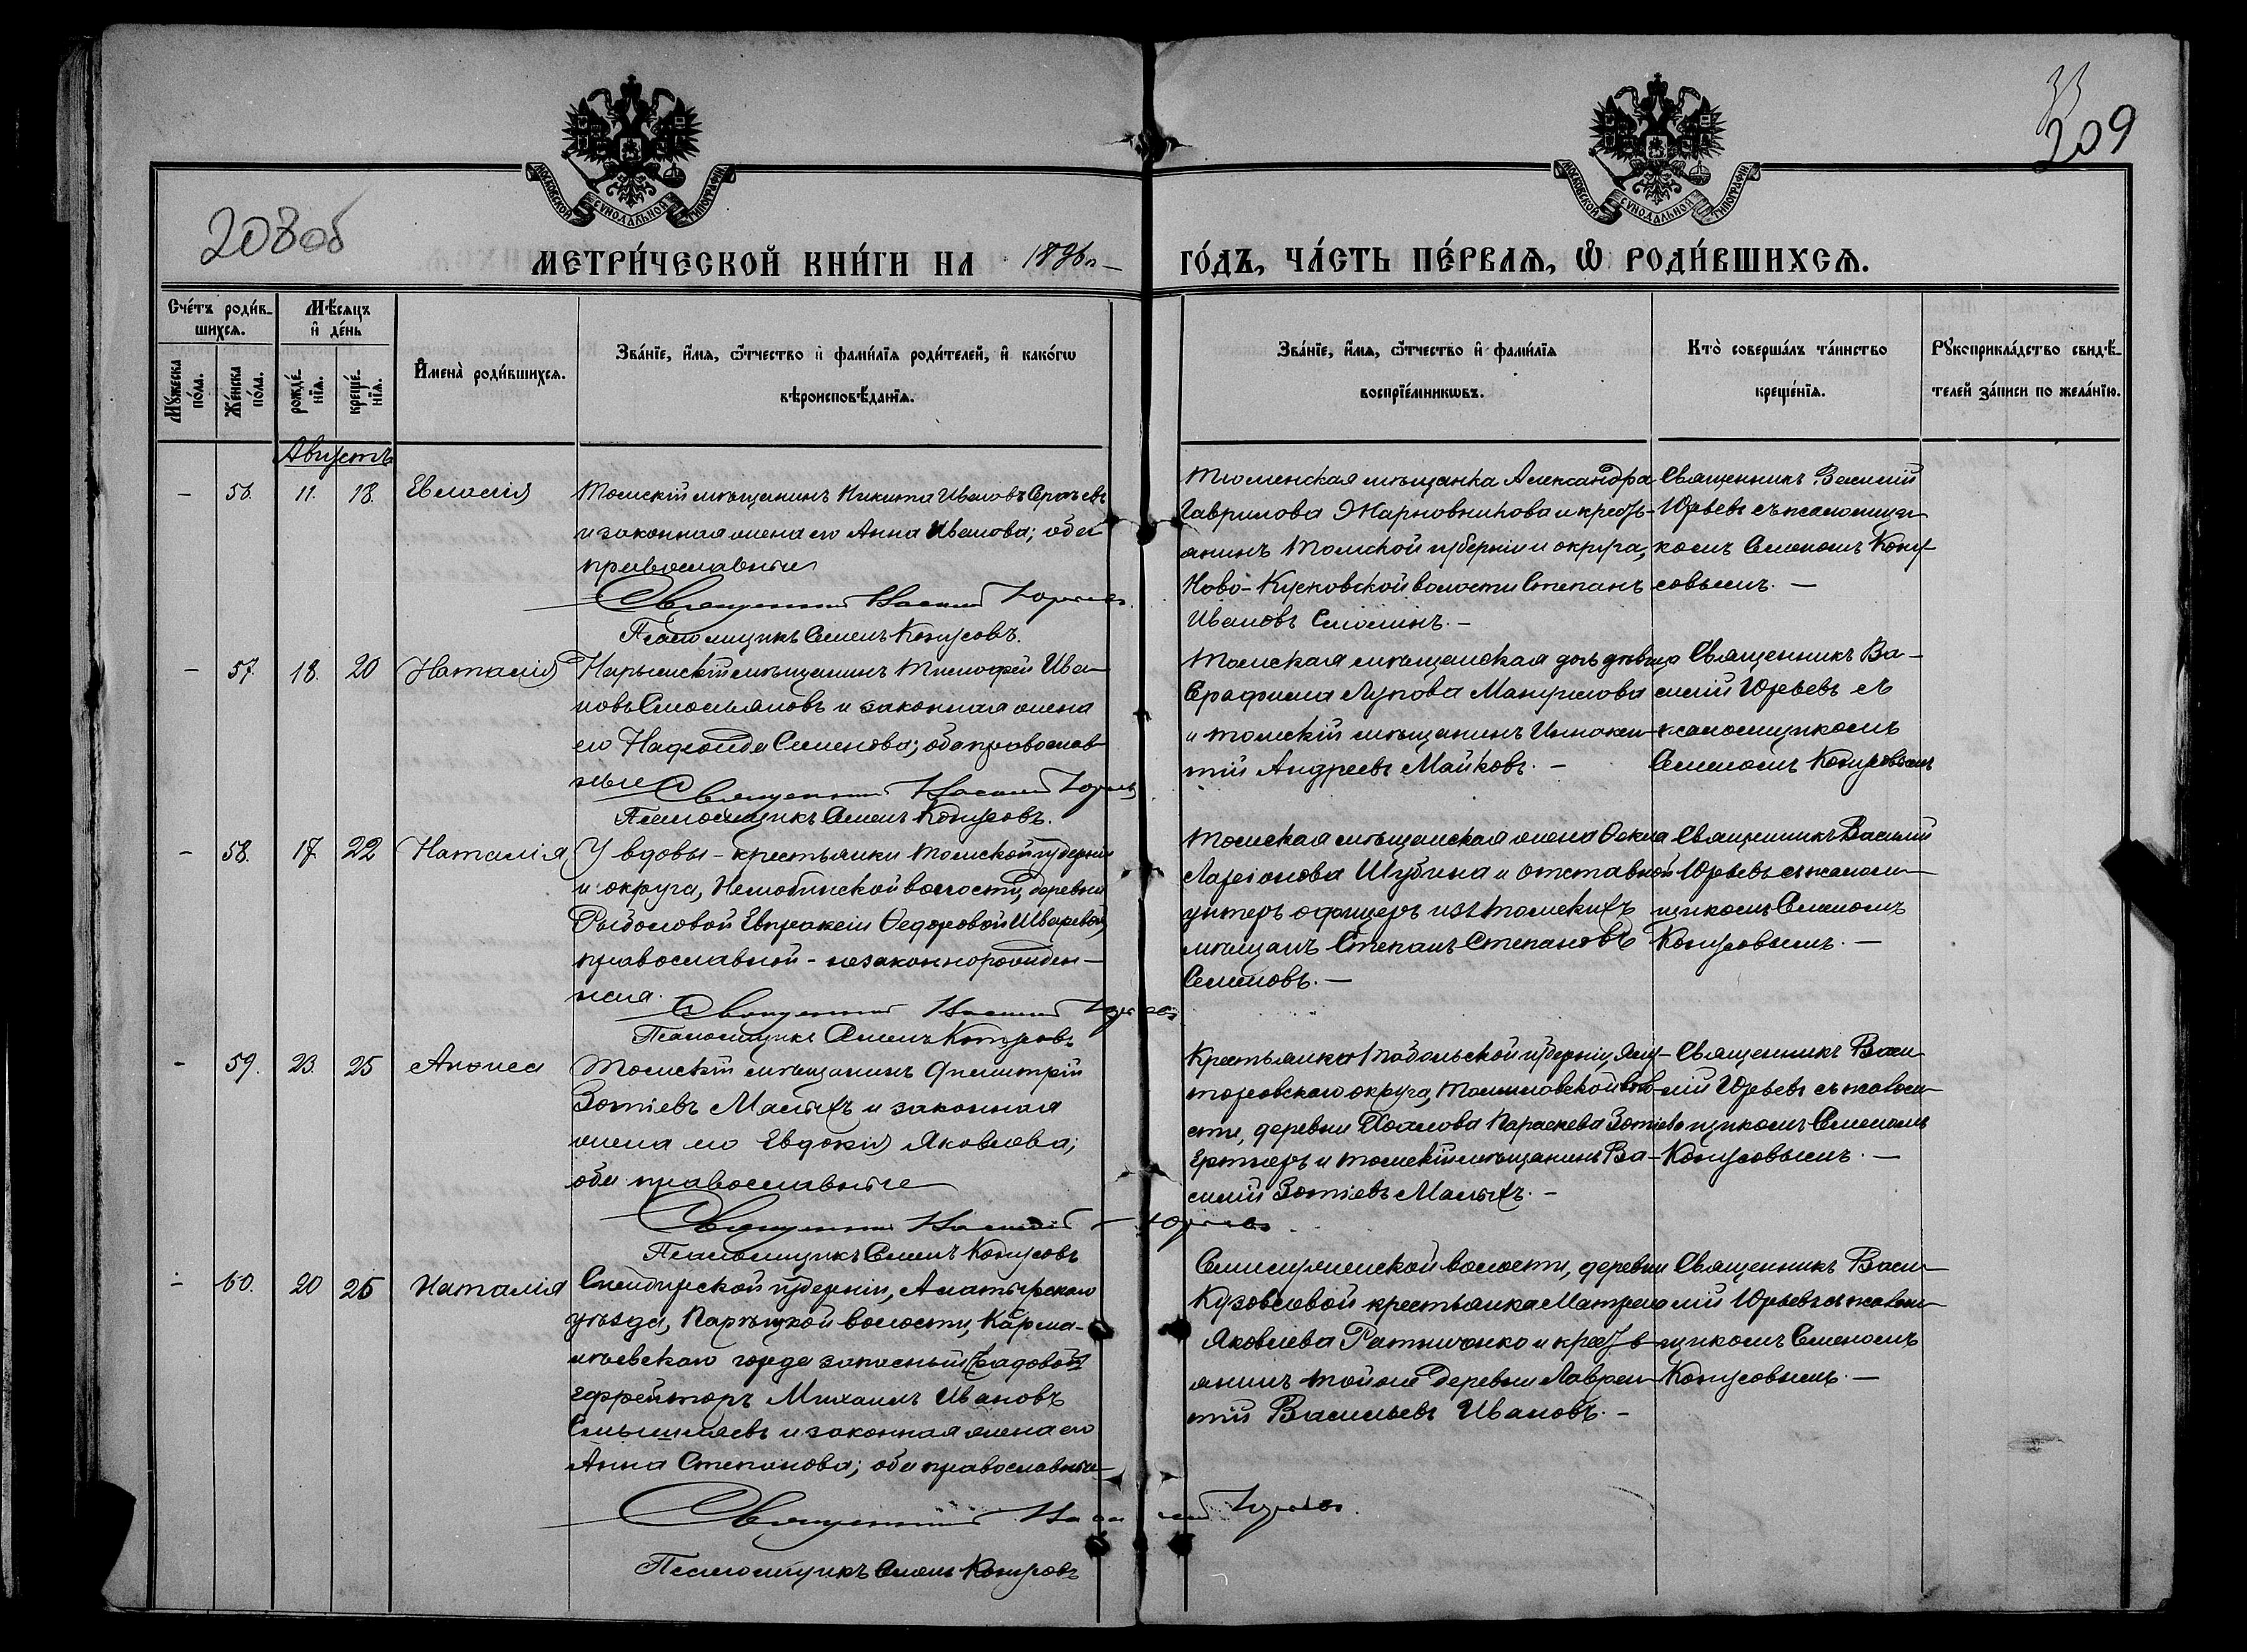 33
209
208об
МОСКОВСКОЙ СѴНОДАЛЬНОЙ ТИПОГРАФІИ
МОСКОВСКОЙ СѴНОДАЛЬНОЙ ТИПОГРАФІИ
МЕТРИ́ЧЕСКОЙ КНИ́ГИ НА 1896 г. ГО́ДЪ, ЧА́СТЬ ПЕ́РВАѦ, Ѽ РОДИ́ВШИХСѦ.
Сче́тъ роди́в-
шихсѧ.
Мѣ́сѧцъ
и҆ де́нь
Мꙋ́жеска
по́ла.
Же́нска
по́ла.
рожде́-
нїѧ.
креще́-
нїѧ.
И҆мена̀ роди́вшихсѧ.
Зва́нїе, и҆́мѧ, ѻ҆́тчество и҆ фами́лїѧ роди́телей, и҆ како́гѡ
вѣроисповѣ́данїѧ.
Зва́нїе, и҆́мѧ, ѻ҆́тчество и҆ фами́лїѧ
воспрїе́мникѡвъ.
Кто̀ соверша́лъ та́инство
креще́нїѧ.
Рꙋкоприкла́дство свидѣ́-
телей за́писи по жела́нїю.
Августъ
- 56. 11. 18. Евлалія
Томскій мѣщанинъ Никита Ивановъ
и законная жена его Анна Иванова; оба
православные
Священникъ Василій Юрьевъ
Псаломщикъ Семенъ Конусовъ.
Тюменская мѣщанка Александра
Гаврилова Жарновникова и кресть-
анинъ Томской губерніи и округа,
Ново-Кусковской волости Степанъ
Ивановъ. -
Священникъ Василій
Юрьевъ съ псаломщи-
комъ Семеномъ Кону-
совымъ. -
- 57. 18. 20 Наталія
Нарымскій мѣщанинъ Тимофей Ива-
новъ и законная жена
его Надежда Семенова; оба православ-
ные
Священникъ Василій Юрьевъ
Псаломщикъ Семенъ Конусовъ.
Томская мѣщанская дочь дѣвица
Серафима Лукова Мануилова
и томскій мѣщанинъ Иннокен-
тій Андреевъ Майковъ. -
Священникъ Ва-
силій Юрьевъ съ
псаломщикомъ
Семеномъ Конусовымъ
- 58. 17. 22 Наталія
У вдовы - крестьянки Томской губерніи
и округа, Нелюбинской волости, деревни
Рыбаловой Евпраксіи Ѳедоровой Шваревой,
православной - незаконнорожден-
ная.
Священникъ Василій Юрьевъ
Псаломщикъ Семенъ Конусовъ
Томская мѣщанская жена Ѳекла
Ларіонова Шубина и отставной
унтеръ офицеръ изъ томскихъ
мѣщанъ Степанъ Степановъ
Семеновъ. -
Священникъ Василій
Юрьевъ съ псалом-
щикомъ Семеномъ
Конусовымъ. -
- 59. 23. 25 Анѳиса
Томскій мѣщанинъ Димитрій
Зотіевъ Малыхъ и законная
жена его Евдокія Яковлева;
оба православные
Священникъ Василій Юрьевъ
Псаломщикъ Семенъ Конусовъ
Крестьянка Тобольской губерніи, Ялу-
торовскаго округа, Томиловской воло-
сти, деревни Параскева Зотіева
и томскій мѣщанинъ Ва-
силій Зотіевъ Малыхъ. -
Священникъ Васи-
лій Юрьевъ съ псалом-
щикомъ Семеномъ
Конусовымъ. -
- 60. 20 25 Наталія
Симбирской губерніи, Алатырскаго
уѣзда, волости, Карма-
города запасный рядовой
ефрейторъ Михаилъ Ивановъ
Смышляевъ и законная жена его
Анна Степанова; оба православные
Священникъ Василій Юрьевъ
Псаломщикъ Семенъ Конусовъ
Семилужской волости, деревни
Кузовлевой крестьянка Матрена
Яковлева и крест-
янинъ той же деревни Лаврен-
тій Васильевъ Ивановъ. -
Священникъ Васи-
лій Юрьевъ съ псалом-
щикомъ Семеномъ
Конусовымъ. -